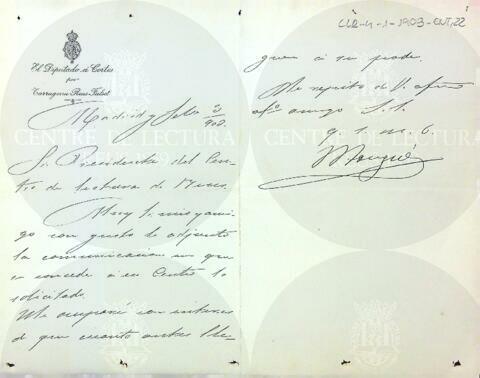 CLR-4-1-1903-ENT, 22
El Diputado á Cortes
por
Tarragona-Reus-Falset
Madrid y Febo 3/903.
Sr. Presidente del Cen-
tro de Lectura de Reus.
Muy Sr. mio y ami-
go con gusto le adjunto
la comunicacion en que
se concede á ese Centro lo
solicitado.
Me ocuparé con interes
de que cuanto antes lle-
guen á su poder.
Me repito de V. afmo
amigo S.S.
q. b. s. m.
CENTRE DE LECTURA
CENTRE DE LECTURA